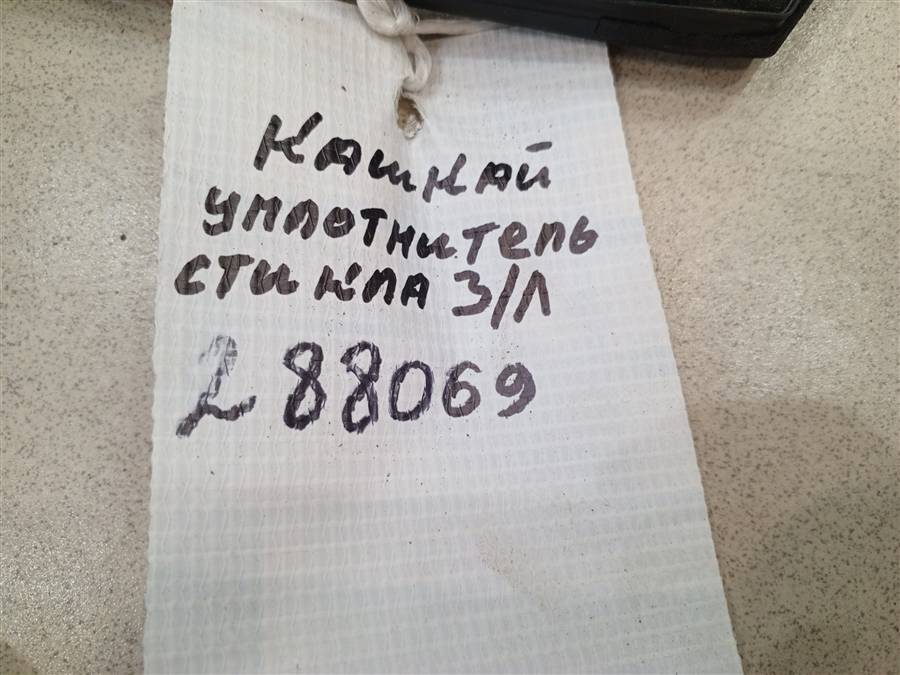 Кашкай
уплотнитель
стикла З/Л
288069